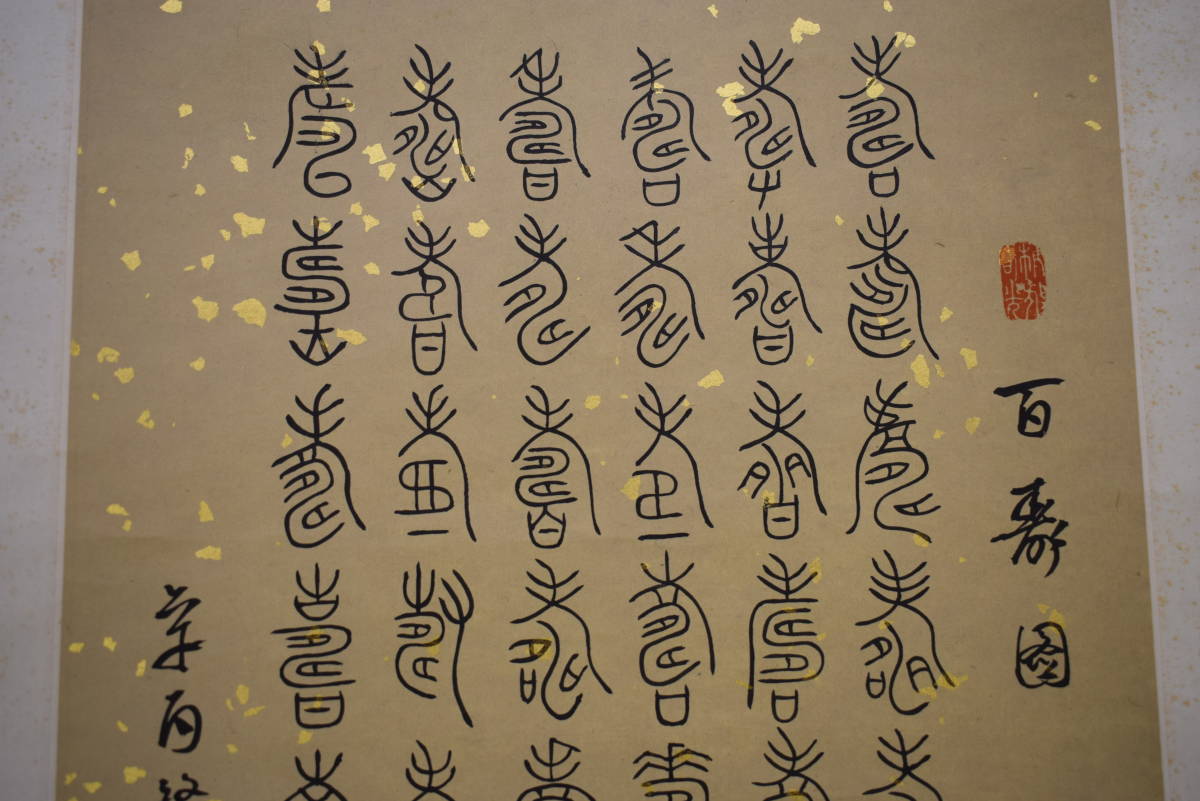 百壽圖
壽壽壽壽壽
壽壽壽壽壽
壽壽壽壽壽
壽壽壽壽壽
壽壽壽壽壽
壽壽壽壽壽